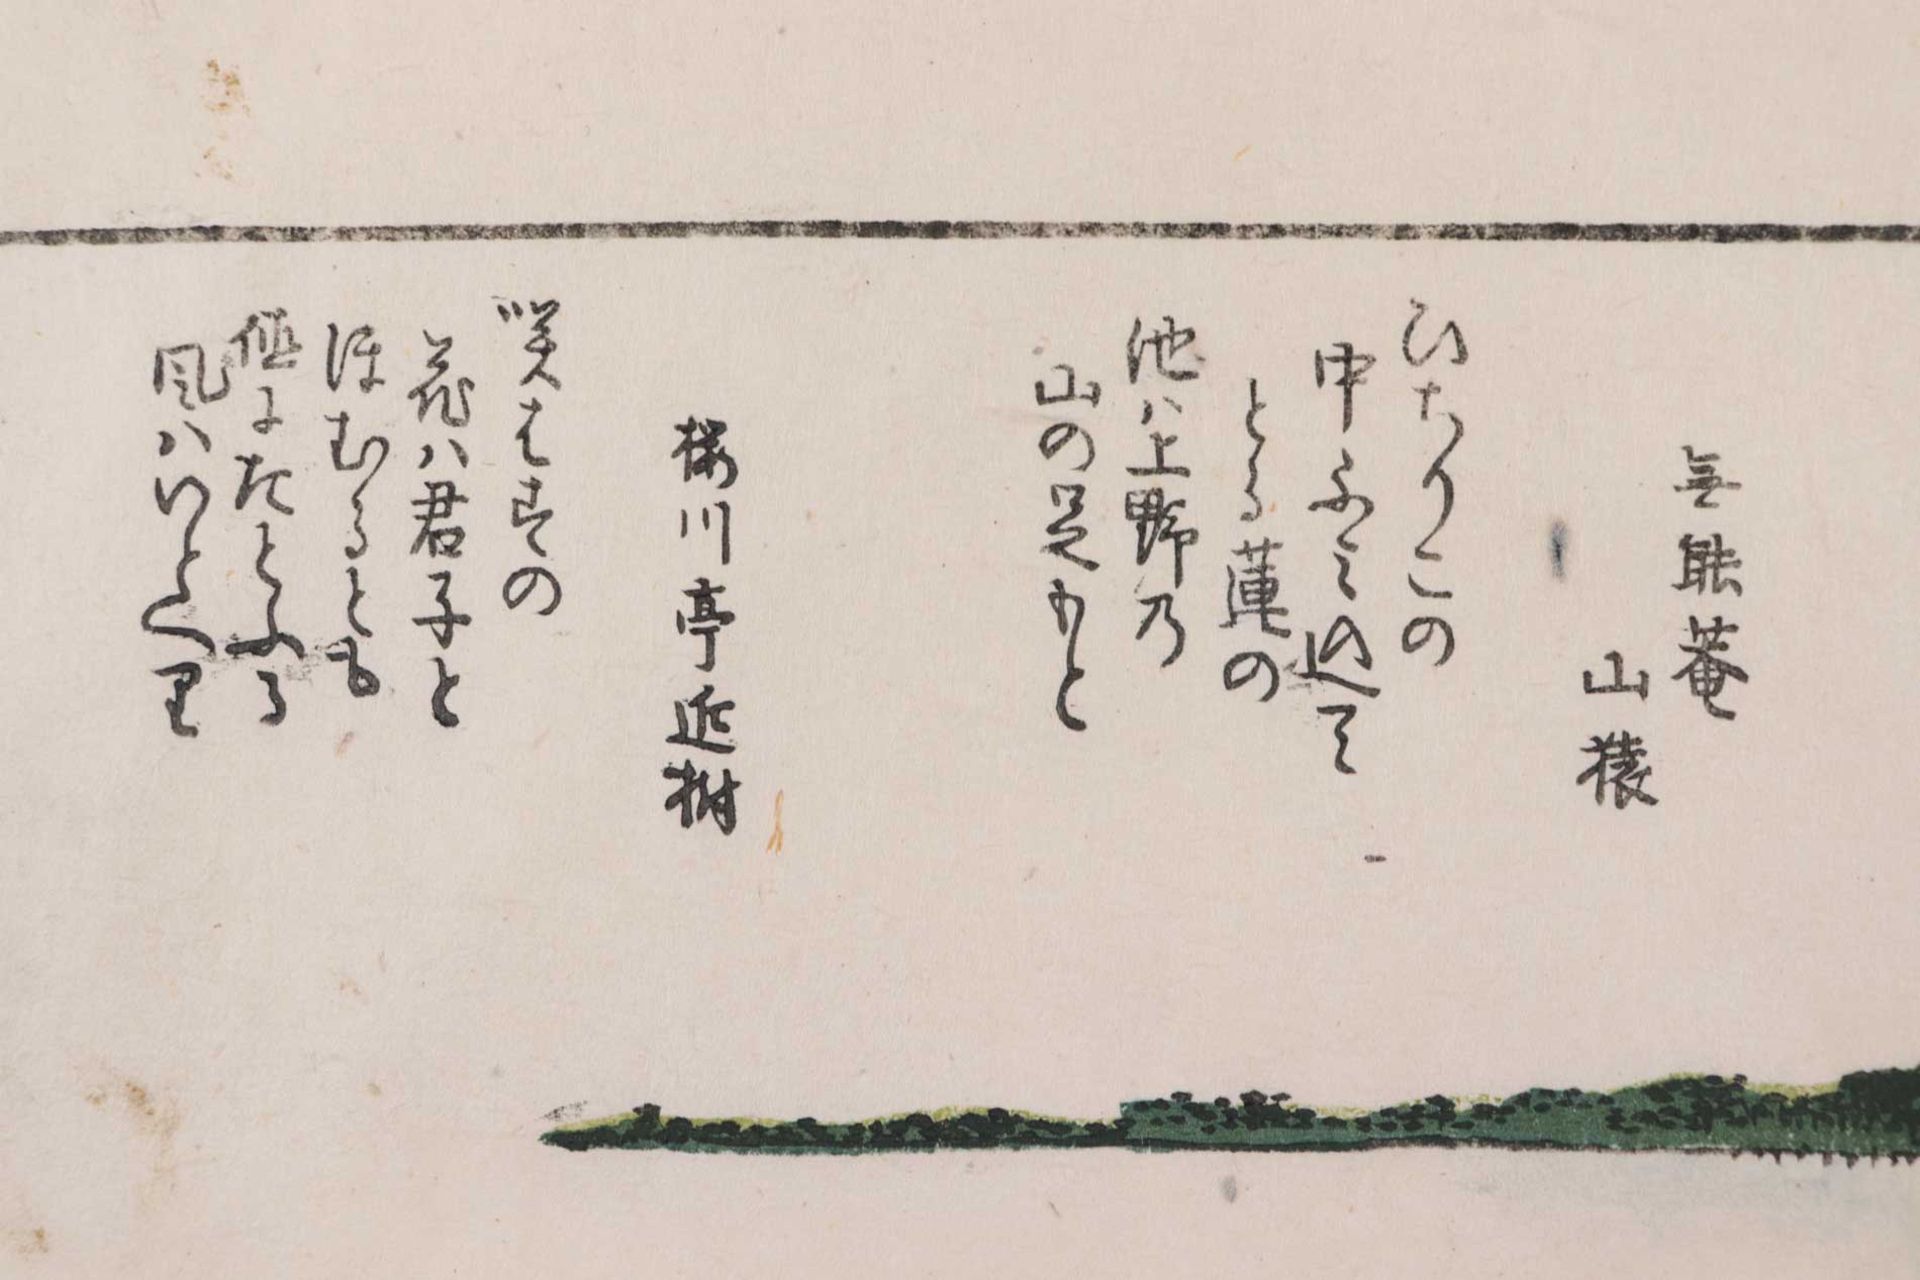 無能菴
山猿
ひちりこの
中ふミ込て
とる蓮の
池ハ上野乃
山の足もと
桜川亭近樹
咲はすの
花ハ君子と
ほむるとも
にたとふる
風ハいとへり